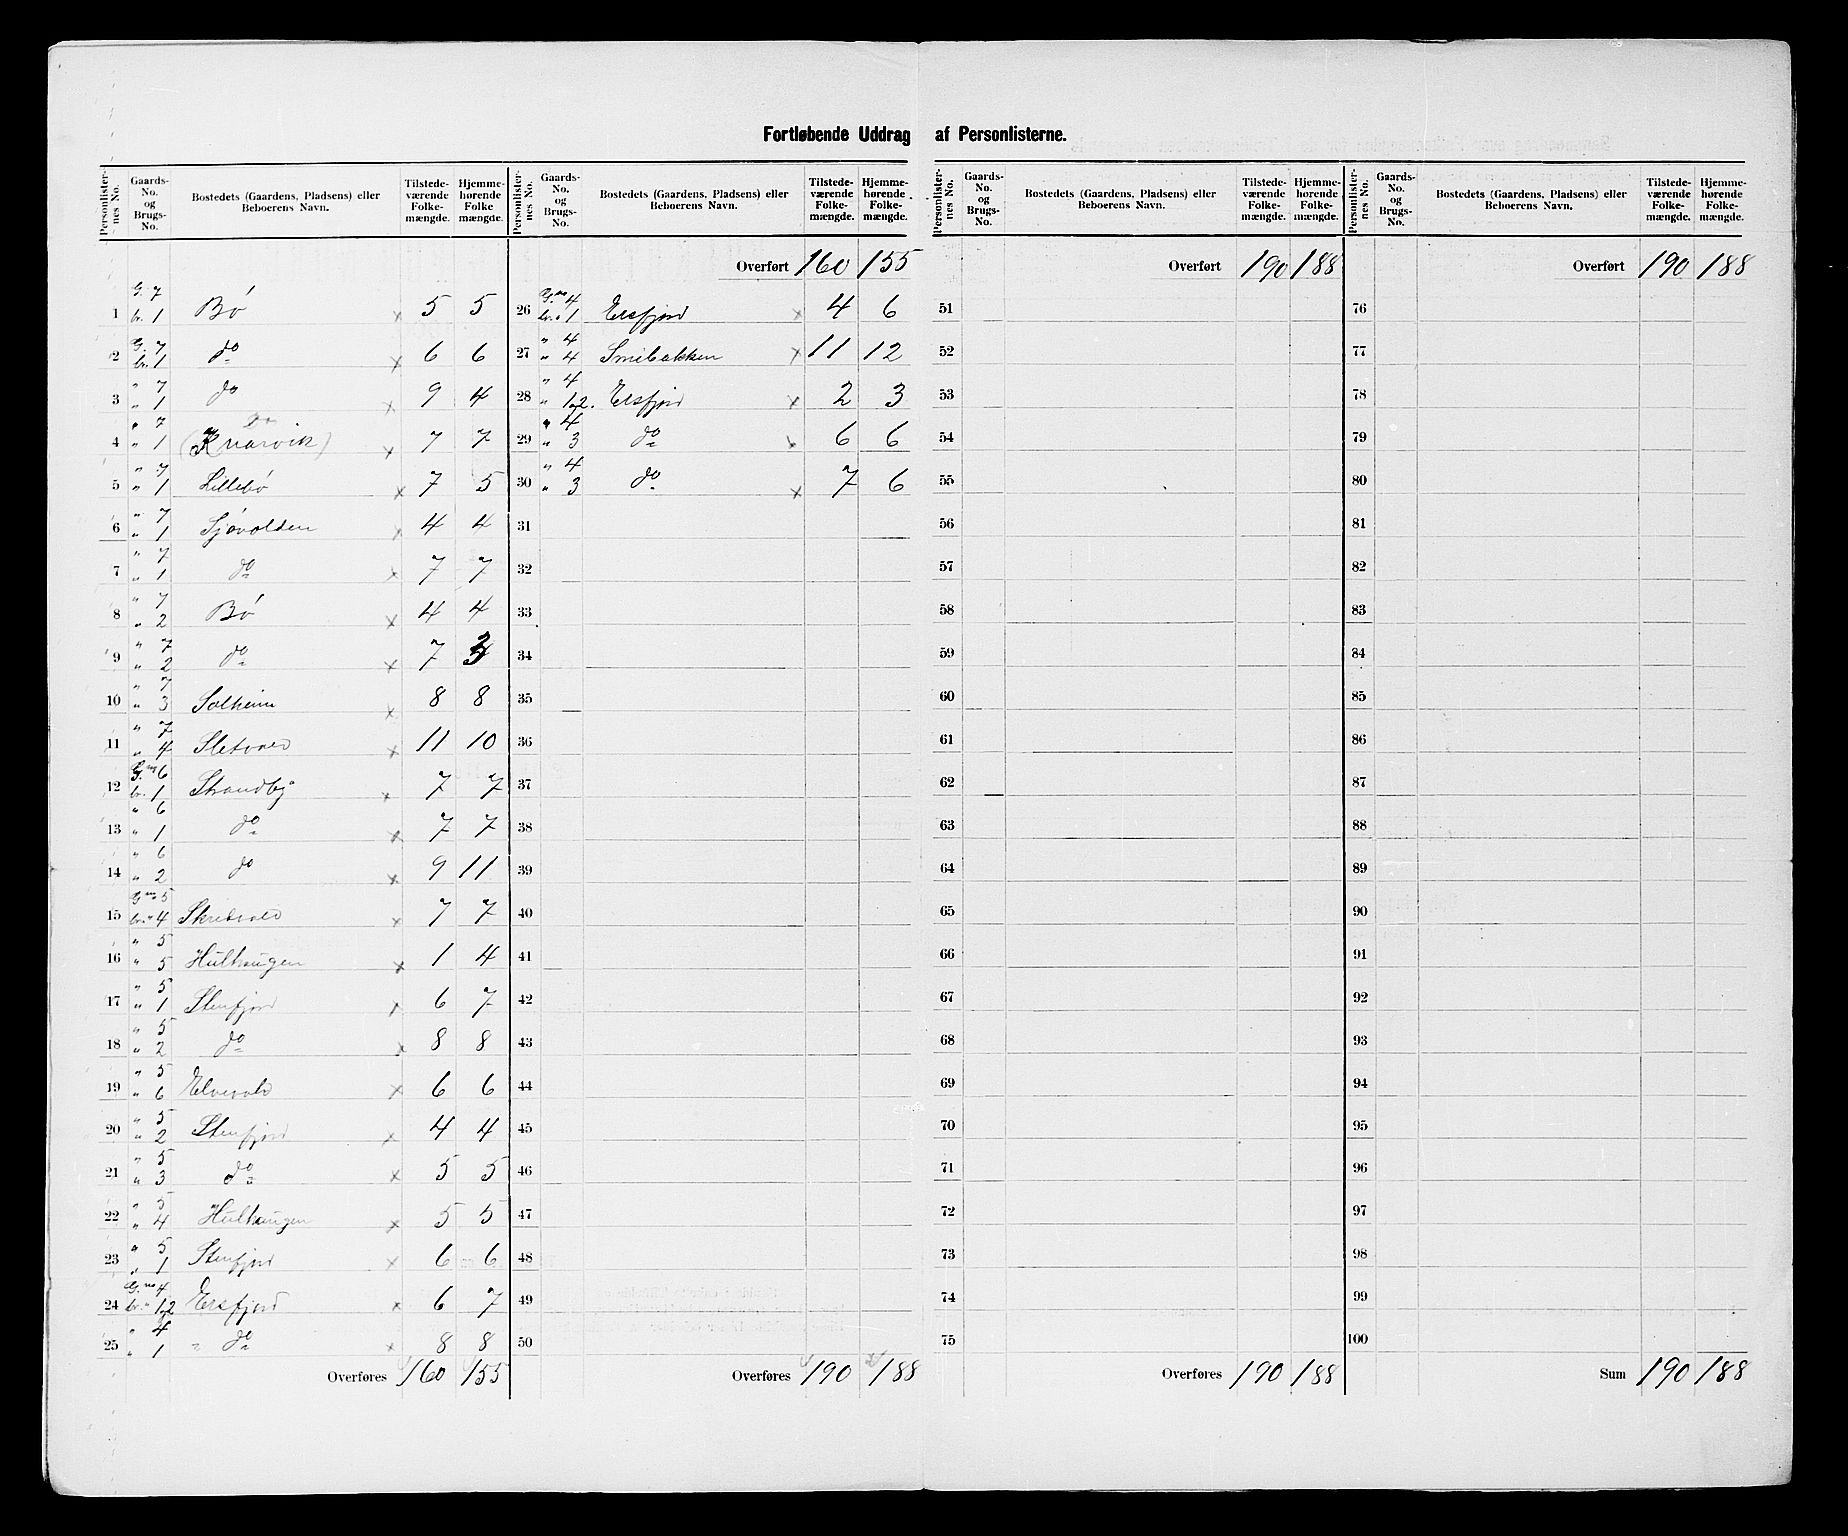 Fortløbende Uddrag af Personlisterne.
Personlister-nes No. | Gaards-No. og Brugs-No. | Bostedets (Gaardens, Pladsens) eller Beboerens Navn. | Tilstede-værende Folke-mængde. | Hjemme-hørende Folke mængde.
1 | G. 7 br. 1 | Bø | x | 5 | 5
2 | G. 7 br. 1 | do | x | 6 | 6
3 | " 7 " 1 | do | x | 9 | 4
4 | " 7 " 1 | Do (Kvarvik) | x | 7 | 7
5 | " 7 " 1 | Lillebø | x | 7 | 5
6 | " 7 " 1 | Sjøvolden | x | 4 | 4
7 | " 7 " 1 | do | x | 7 | 7
8 | " 7 " 2 | Bø | x | 4 | 4
9 | " 7 " 2 | do | x | 7 | 3
10 | " 7 " 3 | Solheim | x | 8 | 8
11 | " 7 " 4 | Sletvold | x | 11 | 10
12 | G.no 6 br. 1 | Strandby | x | 7 | 7
13 | " 6 " 1 | do | x | 7 | 7
14 | " 6 " 2 | do | x | 9 | 11
15 | G.no 5 br. " 4 | x | 7 | 7
16 | " 5 " 5 | Hulhaugen | x | 1 | 4
17 | " 5 " 1 | Stenfjord | x | 6 | 7
18 | " 5 " 2 | do | x | 8 | 8
19 | " 5 " 6 | Elvevold | x | 6 | 6
20 | " 5 " 2 | Stenfjord | x | 4 | 4
21 | " 5 " 3 | do | x | 5 | 5
22 | " 5 " 4 | Hulhaugen | x | 5 | 5
23 | " 5 " 1 | Stenfjord | x | 6 | 6
24 | G. no 4 br. " 1 og 2 | Ersfjord | x | 6 | 7
25 | " 4 " 1 | " do | x | 8 | 8
Overføres | 160 | 155
Personlister-nes No. | Gaards-No. og Brugs-No. | Bostedets (Gaardens, Pladsens) eller Beboerens Navn. | Tilstede-værende Folke-mængde. | Hjemme-hørende Folke-mængde.
Overført | 160 | 155
26 | G.no 4 br. " 1 | Ersfjord | x | 4 | 6
27 | " 4 " 4 | Smibakken | x | 11 | 12
28 | " 4 " 1 og 2. | Ersfjord | x | 2 | 3
29 | " 4 " 3 | do | x | 6 | 6
30 | " 4 " 3 | do | x | 7 | 6
31
32
33
34
35
36
37
38
39
40
41
42
43
44
45
46
47
48
49
50
Overføres | 190 | 188
Personlister-nes No. | Gaards-No. og Brugs-No. | Bostedets (Gaardens, Pladsens) eller Beboerens Navn. | Tilstede-værende Folke-mængde. | Hjemme-hørende Folke-mængde.
Overført | 190 | 188
51
52
53
54
55
56
57
58
59
60
61
62
63
64
65
66
67
68
69
70
71
72
73
74
75
Overføres | 190 | 188
Personlister-nes No. | Gaards-No. og Brugs-No. | Bostedets (Gaardens, Pladsens) eller Beboerens Navn. | Tilstede-værende Folke-mængde. | Hjemme-hørende Folke-mængde.
Overført | 190 | 188
76
77
78
79
80
81
82
83
84
85
86
87
88
89
90
91
92
93
94
95
96
97
98
99
100
Sum | 190 | 188